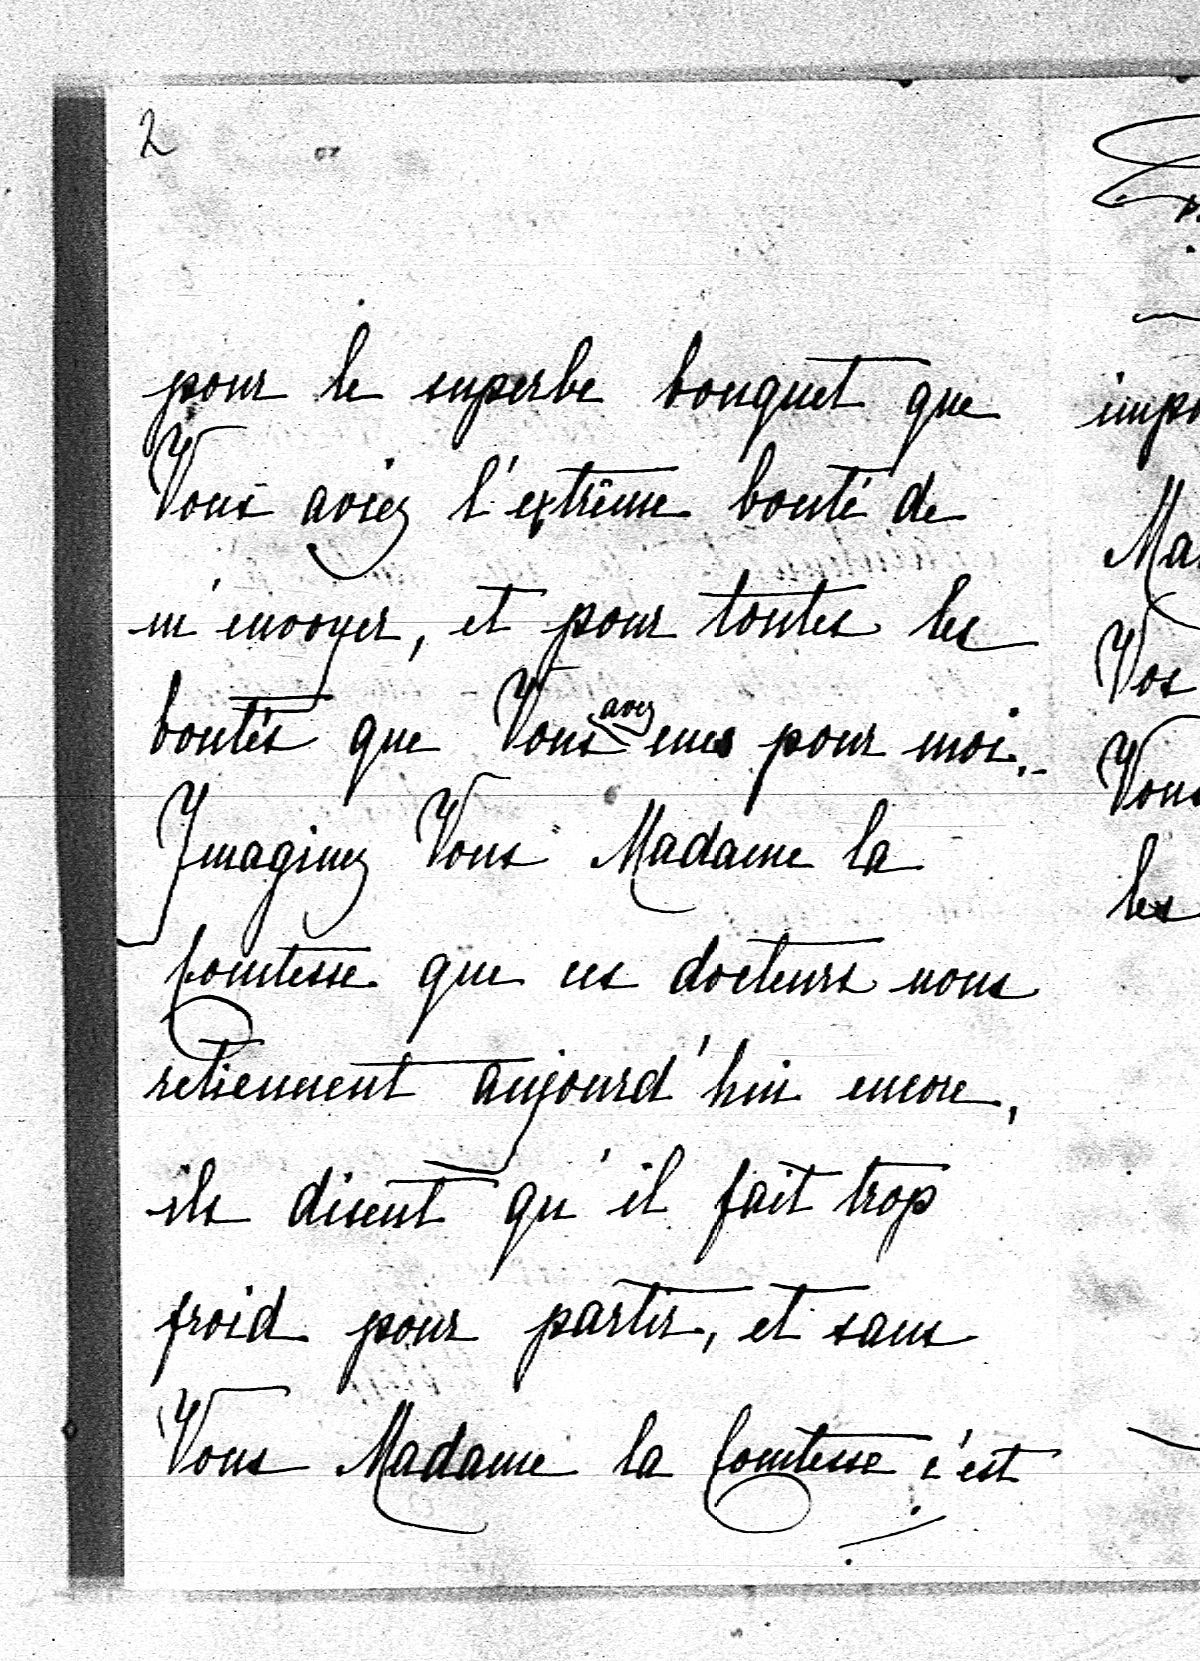 2
pour le superbe bouquet que
Vous aviez l'extrême bonté de
m'envoyer, et pour toutes les
bontés que Vous avez eues pour moi.-
Imaginez Vous Madame la
Comtesse que ces docteurs nous
retiennent aujourd'hui encore,
ils disent qu'il fait trop
froid pour partir, et sans
Vous Madame la Comtesse c'est
Vos
Vous
les